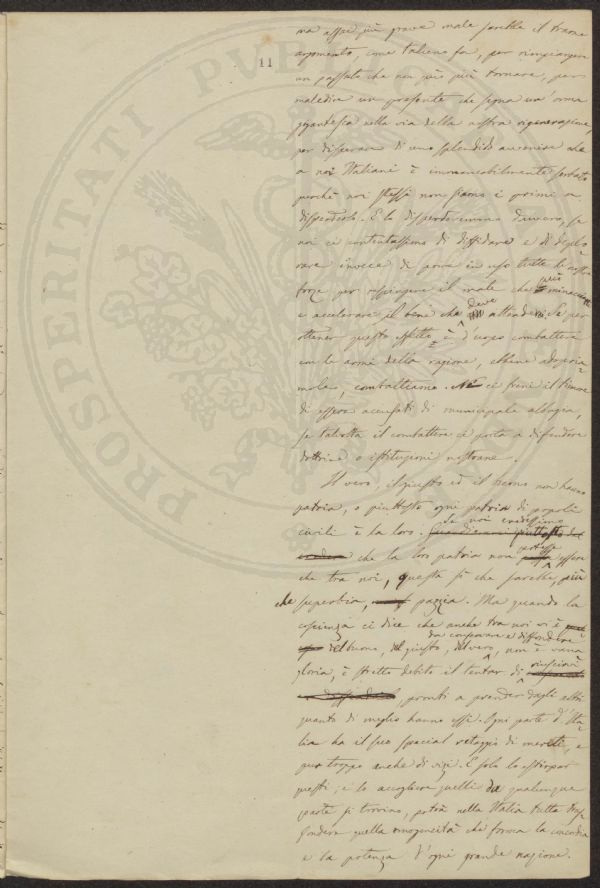 11
ma assai più grave male sarebbe il trarne
argomento, come taluno fa, per rimpiangere
un passato che non può più tornare, per
maledire un presente che segna un'orma
gigantesca nella via della nostra rigenerazione,
per disperare di uno splendido avvenire che
a noi Italiani è immancabilmente serbato
purchè noi stessi non siamo i primi a
disperderlo. E lo disperderemmo davvero, se
noi ci contentassimo di diffidare e di deplo=
rare invece di porre in uso tutte le nostre
forze per respingere il male che può minacciare
e accelerare il bene che deve attenderci. Se per
ottener questo effetto è d'uopo combattere
con le armi della ragione, ebbene adoperia=
mole, combattiamo. Nè ci freni il timore
di essere accusati di municipale albagia,
se talvolta il combattere ci porta a difendere
dottrine o istituzioni nostrane.
Il vero, il giusto ed il buono non hanno
patria, o piuttosto ogni patria di popoli
civili è la loro. Se noi credessimo
che la loro patria non potesse essere
che tra noi, questa sì che sarebbe, più
che superbia, pazzia. Ma quando la
coscienza ci dice che anche tra noi vi è
del buono, del giusto, del vero, non è vana
gloria, è stretto debito il tentar di da conservare e diffondere
pronti a prender dagli altri
quanto di meglio hanno essi. Ogni parte d'Ita=
lia ha il suo special retaggio di meriti, e
pur troppo anche di vizi. E solo lo estirpar
questi, e lo accogliere quelli da qualunque
parte si trovino, potrà nella Italia tutta tras=
fondere quella omogeneità che forma la concordia
e la potenza d'ogni grande nazione.
PROSPERITATI PVBLICAE